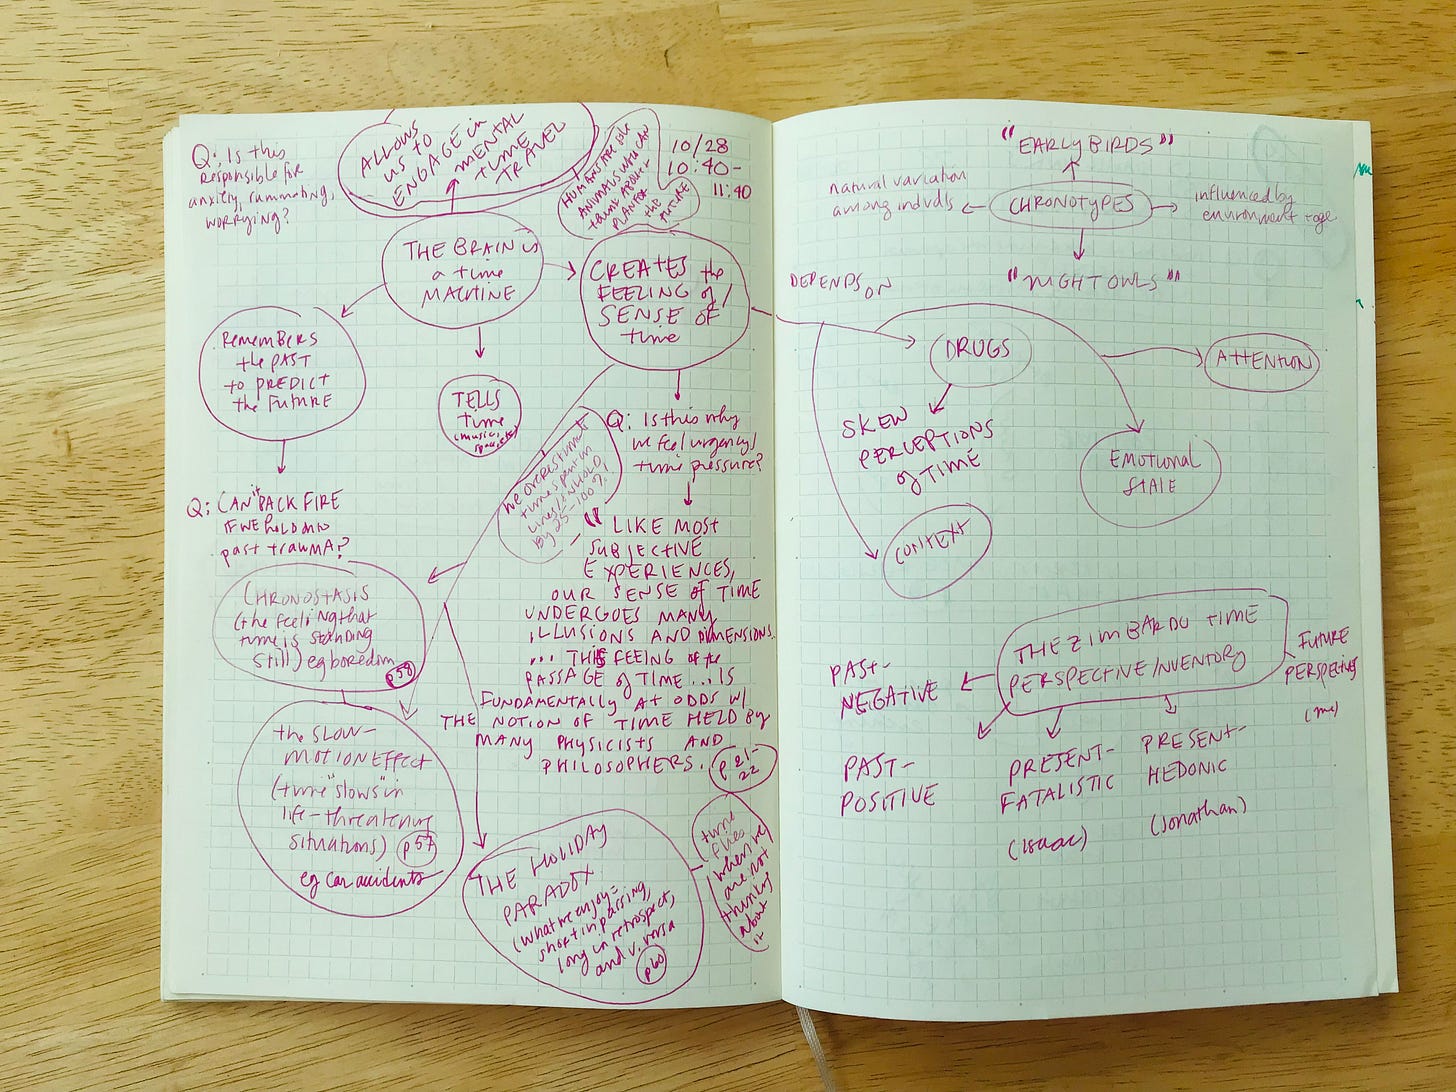 Q: Is this
responsible for
anxiety, rumminating,
worrying?
ALLOWS
us to
ENGAGE in
MENTAL
TIME
TRAVEL
HUMANS ARE SOLE
ANIMALS WHO CAN
THINK ABOUT &
PLAN FOR
the
FUTURE
10/28
10:40-
11:40
THE BRAIN is
a time
MACHINE
CREATES the
FEELING of/
SENSE OF
time
REMEMBERS
the PAST
to PREDICT
the FUTURE
TELLS
time
(music,
Q: CAN it BACKFIRE
IF WE hold onto
past trauma?
we overestimate
time spent in
lines/on HOLD
by 25-100%!
Q: Is this why
we feel urgency/
time pressure?
"LIKE MOST
SUBJECTIVE
EXPERIENCES,
OUR SENSE of TIME
UNDERGOES MANY
ILLUSIONS AND DIMENSIONS.
... THIS FEEING of the
PASSAGE of TIME... IS
FUNDAMENTALLY AT ODDS W/
THE NOTION OF TIME HELD BY
MANY PHYSICISTS AND
PHILOSOPHERS.
p 21-
22
CHRONOSTASIS
(the feeling that
time is standing
still) eg boredom
p58
the SLOW-
MOTION EFFECT
(time "slows" in
life-threatening
situations) p57
eg car accidents
THE HOLIDAY
PARADOX
(what we enjoy =
short in passing,
long in retrospect,
and v. versa
p60
time
flies
when we
are not
thinking
about
it
"EARLY BIRDS"
natural variation
among indvdls
CHRONOTYPES
influenced by
environment & age
"NIGHT OWLS"
DEPENDS ON
DRUGS
ATTENTION
SKEW
PERCEPTIONS
of TIME
EMOTIONAL
STATE
CONTEXT
THE ZIMBARDO TIME
PERSPECTIVE INVENTORY
FUTURE
PERSPECTIVES
(me)
PAST-
NEGATIVE
PAST-
POSITIVE
PRESENT-
FATALISTIC
(Isaac)
PRESENT-
HEDONIC
(Jonathan)